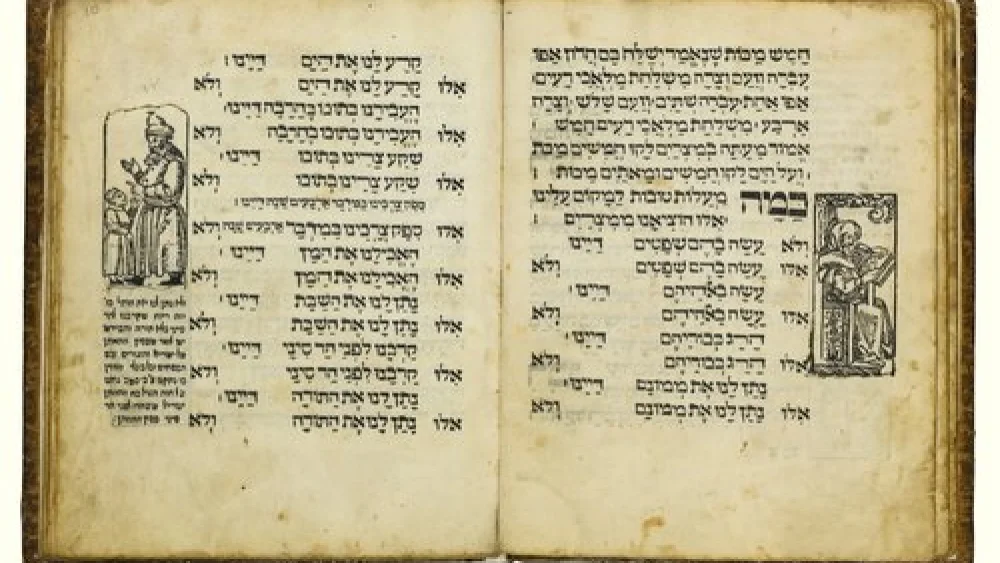 חמש מכות שנאמר ישלח בם חרון אפו
עברה וזעם וצרה משלחת מלאכי רעים:
אפו אחת עברה שתים וזעם שלש וצרה
ארבע משלחת מלאכי רעים חמש:
אמור מעתה במצרים לקו חמשים מכות
ועל הים לקו חמשים ומאתים מכות:
כמה מעלות טובות למקום עלינו
אלו הוציאנו ממצרים:
ולא עשה בהם שפטים דיינו:
אלו עשה בהם שפטים ולא
עשה באלהיהם דיינו:
אלו עשה באלהיהם ולא
הרג בכוריהם דיינו:
אלו הרג בכוריהם ולא
נתן לנו את ממונם דיינו:
אלו נתן לנו את ממונם ולא
קרע לנו את הים דיינו:
אלו קרע לנו את הים ולא
העבירנו בתוכו בחרבה דיינו:
אלו העבירנו בתוכו בחרבה ולא
שקע צרינו בתוכו דיינו:
אלו שקע צרינו בתוכו ולא
ספק צרכינו במדבר ארבעים שנה דיינו:
אלו ספק צרכינו במדבר ארבעים שנה ולא
האכילנו את המן דיינו:
אלו האכילנו את המן ולא
נתן לנו את השבת דיינו:
אלו נתן לנו את השבת ולא
קרבנו לפני הר סיני דיינו:
אלו קרבנו לפני הר סיני ולא
נתן לנו את התורה דיינו:
אלו נתן לנו את התורה ולא